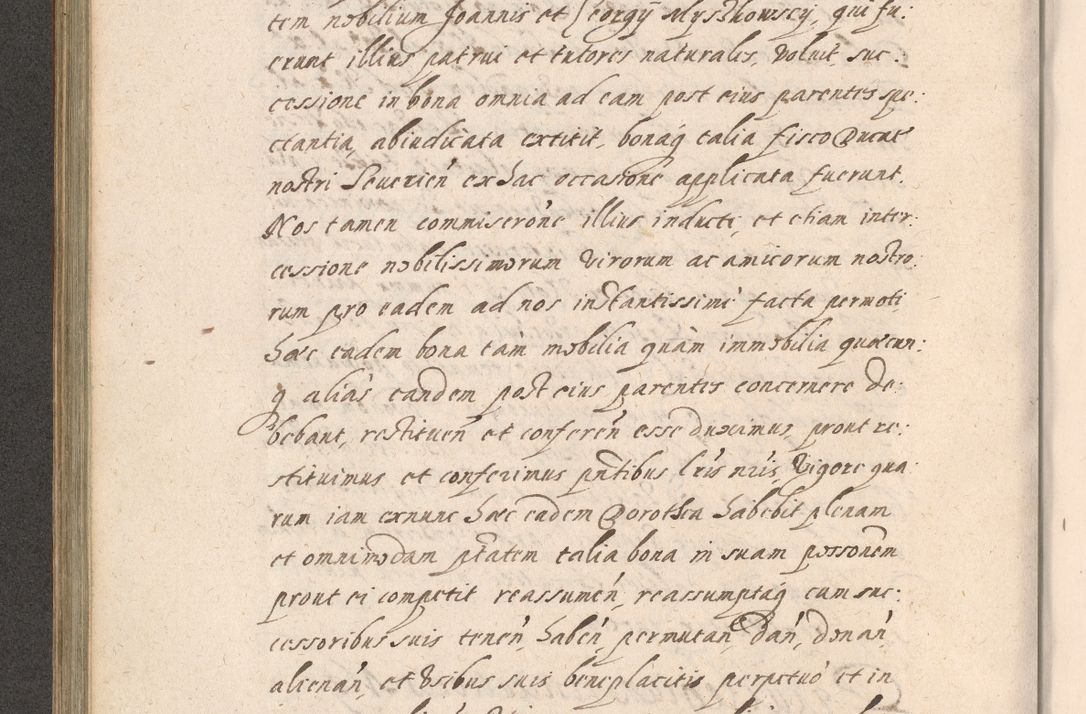 tem nobilium Joannis et Georgÿ Myszkowscÿ, qui fu:
erunt illius patrui et tutores naturales, voluit, suc:
cessione in bona omnia ad eam post eius parentes spe:
ctantia, abiudicata extitit, bonaq́ talia fisco Ducat9
nostri Seuerień ex hac occasione applicata fuerunt.
Nos tamen commiserońe illius inducti, et etiam inter:
cessione nobilissimorum virorum ac amicorum nostro:
rum pro eadem ad nos instantissimè facta permoti,
haec eadem bona tàm mobilia quàm immobilia quaecun:
q́ aliàs eandem post eius parentes concernere de:
bebant, restitueń et confereń esse duximus, prout re:
stituimus et conferimus pn̄tibus lr̄is nr̄is, Vigore qua:
rum iam exnunc haec eadem Dorothea habebit plenam
et omnimodam ptātem talia bona in suam possōnem
prout ei competit reassumeń, reassumptaq́ cum suc:
cessoribus suis teneń, habeń, permutań, dań, donań,
alienań, et Vsibus suis beneplacitis perpetuò et in